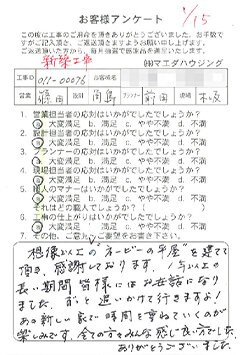 お客様アンケート
1/15
この度は工事のご用命を頂きありがとうございました。お手数で
すがご記入頂き、ご返送頂きますようお願い申し上げます。
ご返送いただいた方から、毎月抽選で感謝品を進呈いたします。
新築工事
㈱マエダハウジング
工事ID 011-00076 お客様名
営業 篠田 設計 角島 プランナー 前田 監督
1. 営業担当者の対応はいかがでしたでしょうか?
a. 大変満足 b. 満足 c. やや不満 d. 不満
2. 設計担当者の対応はいかがでしたでしょうか?
a. 大変満足 b. 満足 c. やや不満 d. 不満
3. プランナーの対応はいかがでしたでしょうか?
a. 大変満足 b. 満足 c. やや不満 d. 不満
4. 監督担当者の対応はいかがでしたでしょうか?
a. 大変満足 b. 満足 c. やや不満 d. 不満
5. 職人のマナーはいかがでしたでしょうか?
それはどの職人でしょうか?( )
a. 大変満足 b. 満足 c. やや不満 d. 不満
6. 工事の仕上がりはいかがでしたでしょうか?
a. 大変満足 b. 満足 c. やや不満 d. 不満
7. その他、ご意見・ご要望をお書き下さい。
想像以上の"ネービーの平屋"を建てて
頂き、感謝しております。1年以上の
長い期間皆様にはお世話になり
ました。ずっと追いかけて行きますよ!
あの新しい家で時間を重ねていくのが
楽しみです。全ての方々みんな感じ良い方でした。
ありがとうございました。